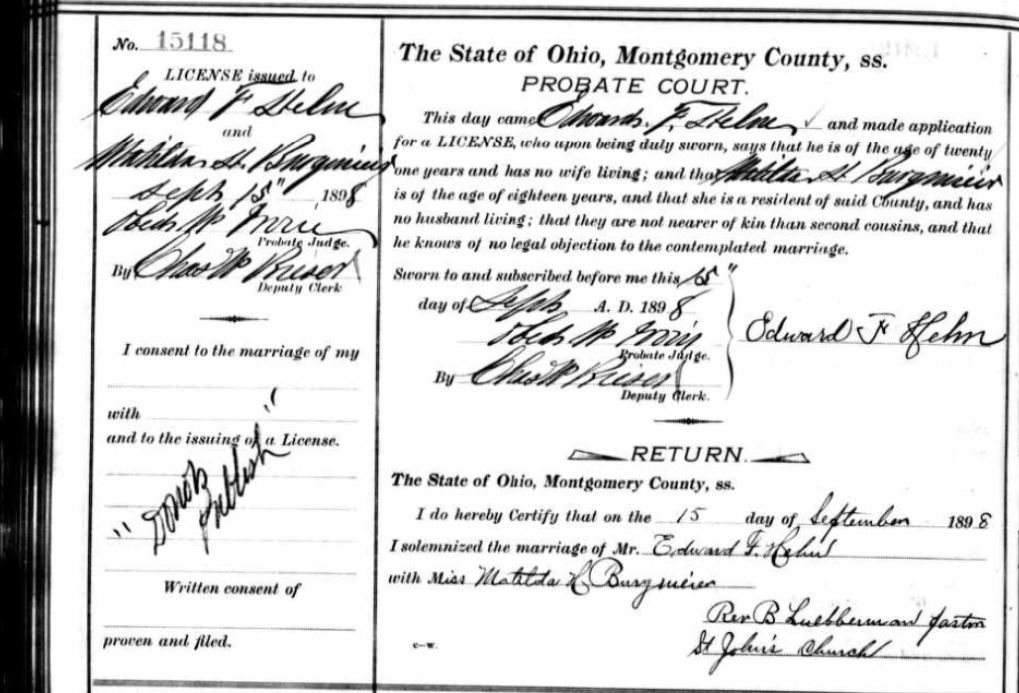 No. 15118
LICENSE issued to
Edward F Hehn
and
Matilda H. Burgmeier
Sept 15" 1898
Obed W. Irvin
Probate Judge.
By Chas W
Deputy Clerk
I consent to the marriage of my
with
and to the issuing of a License.
"Don't
Publish"
Written consent of
proven and filed.
The State of Ohio, Montgomery County, ss.
PROBATE COURT.
This day came Edward F. Hehn and made application
for a LICENSE, who upon being duly sworn, says that he is of the age of twenty
one years and has no wife living; and that Matilda H Burgmeier
is of the age of eighteen years, and that she is a resident of said County, and has
no husband living; that they are not nearer of kin than second cousins, and that
he knows of no legal objection to the contemplated marriage.
Sworn to and subscribed before me this 15"
day of Sept A. D. 1898
Obed W. Irvin
Probate Judge.
By Chas W
Deputy Clerk.
Edward F Hehn
RETURN.
The State of Ohio, Montgomery County, ss.
I do hereby Certify that on the 15 day of September 1898
I solemnized the marriage of Mr. Edward F. Hehn
with Miss Matilda H. Burgmeier
Rev B Luebberman pastor
St John's Church
c-w.